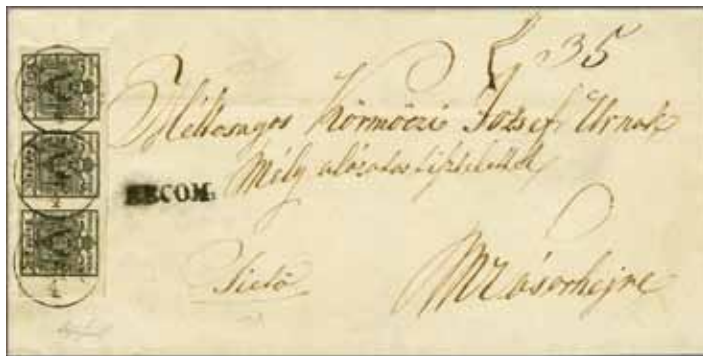 35
Méltosagos Körmöczi Jozsef Urnak
Mély alázatos tisztelettel
RECOM.
Sietö
MVásarhejre